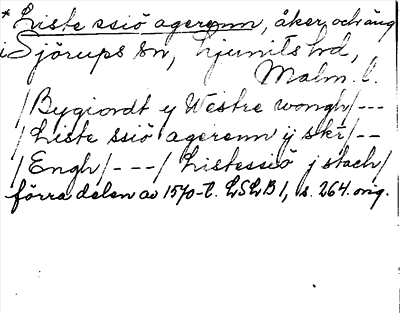 * Liste ssiö agerenn, åker och äng
i Sjörups sn, Ljunits hd,
Malm. l.
/Bygiordt ij Westre wongh/---
/Liste ssiö agerenn ij skr/--
/Engh/---/Listessiö j stach/
förra delen av 1570-t. LSLB 1, s. 264. orig.